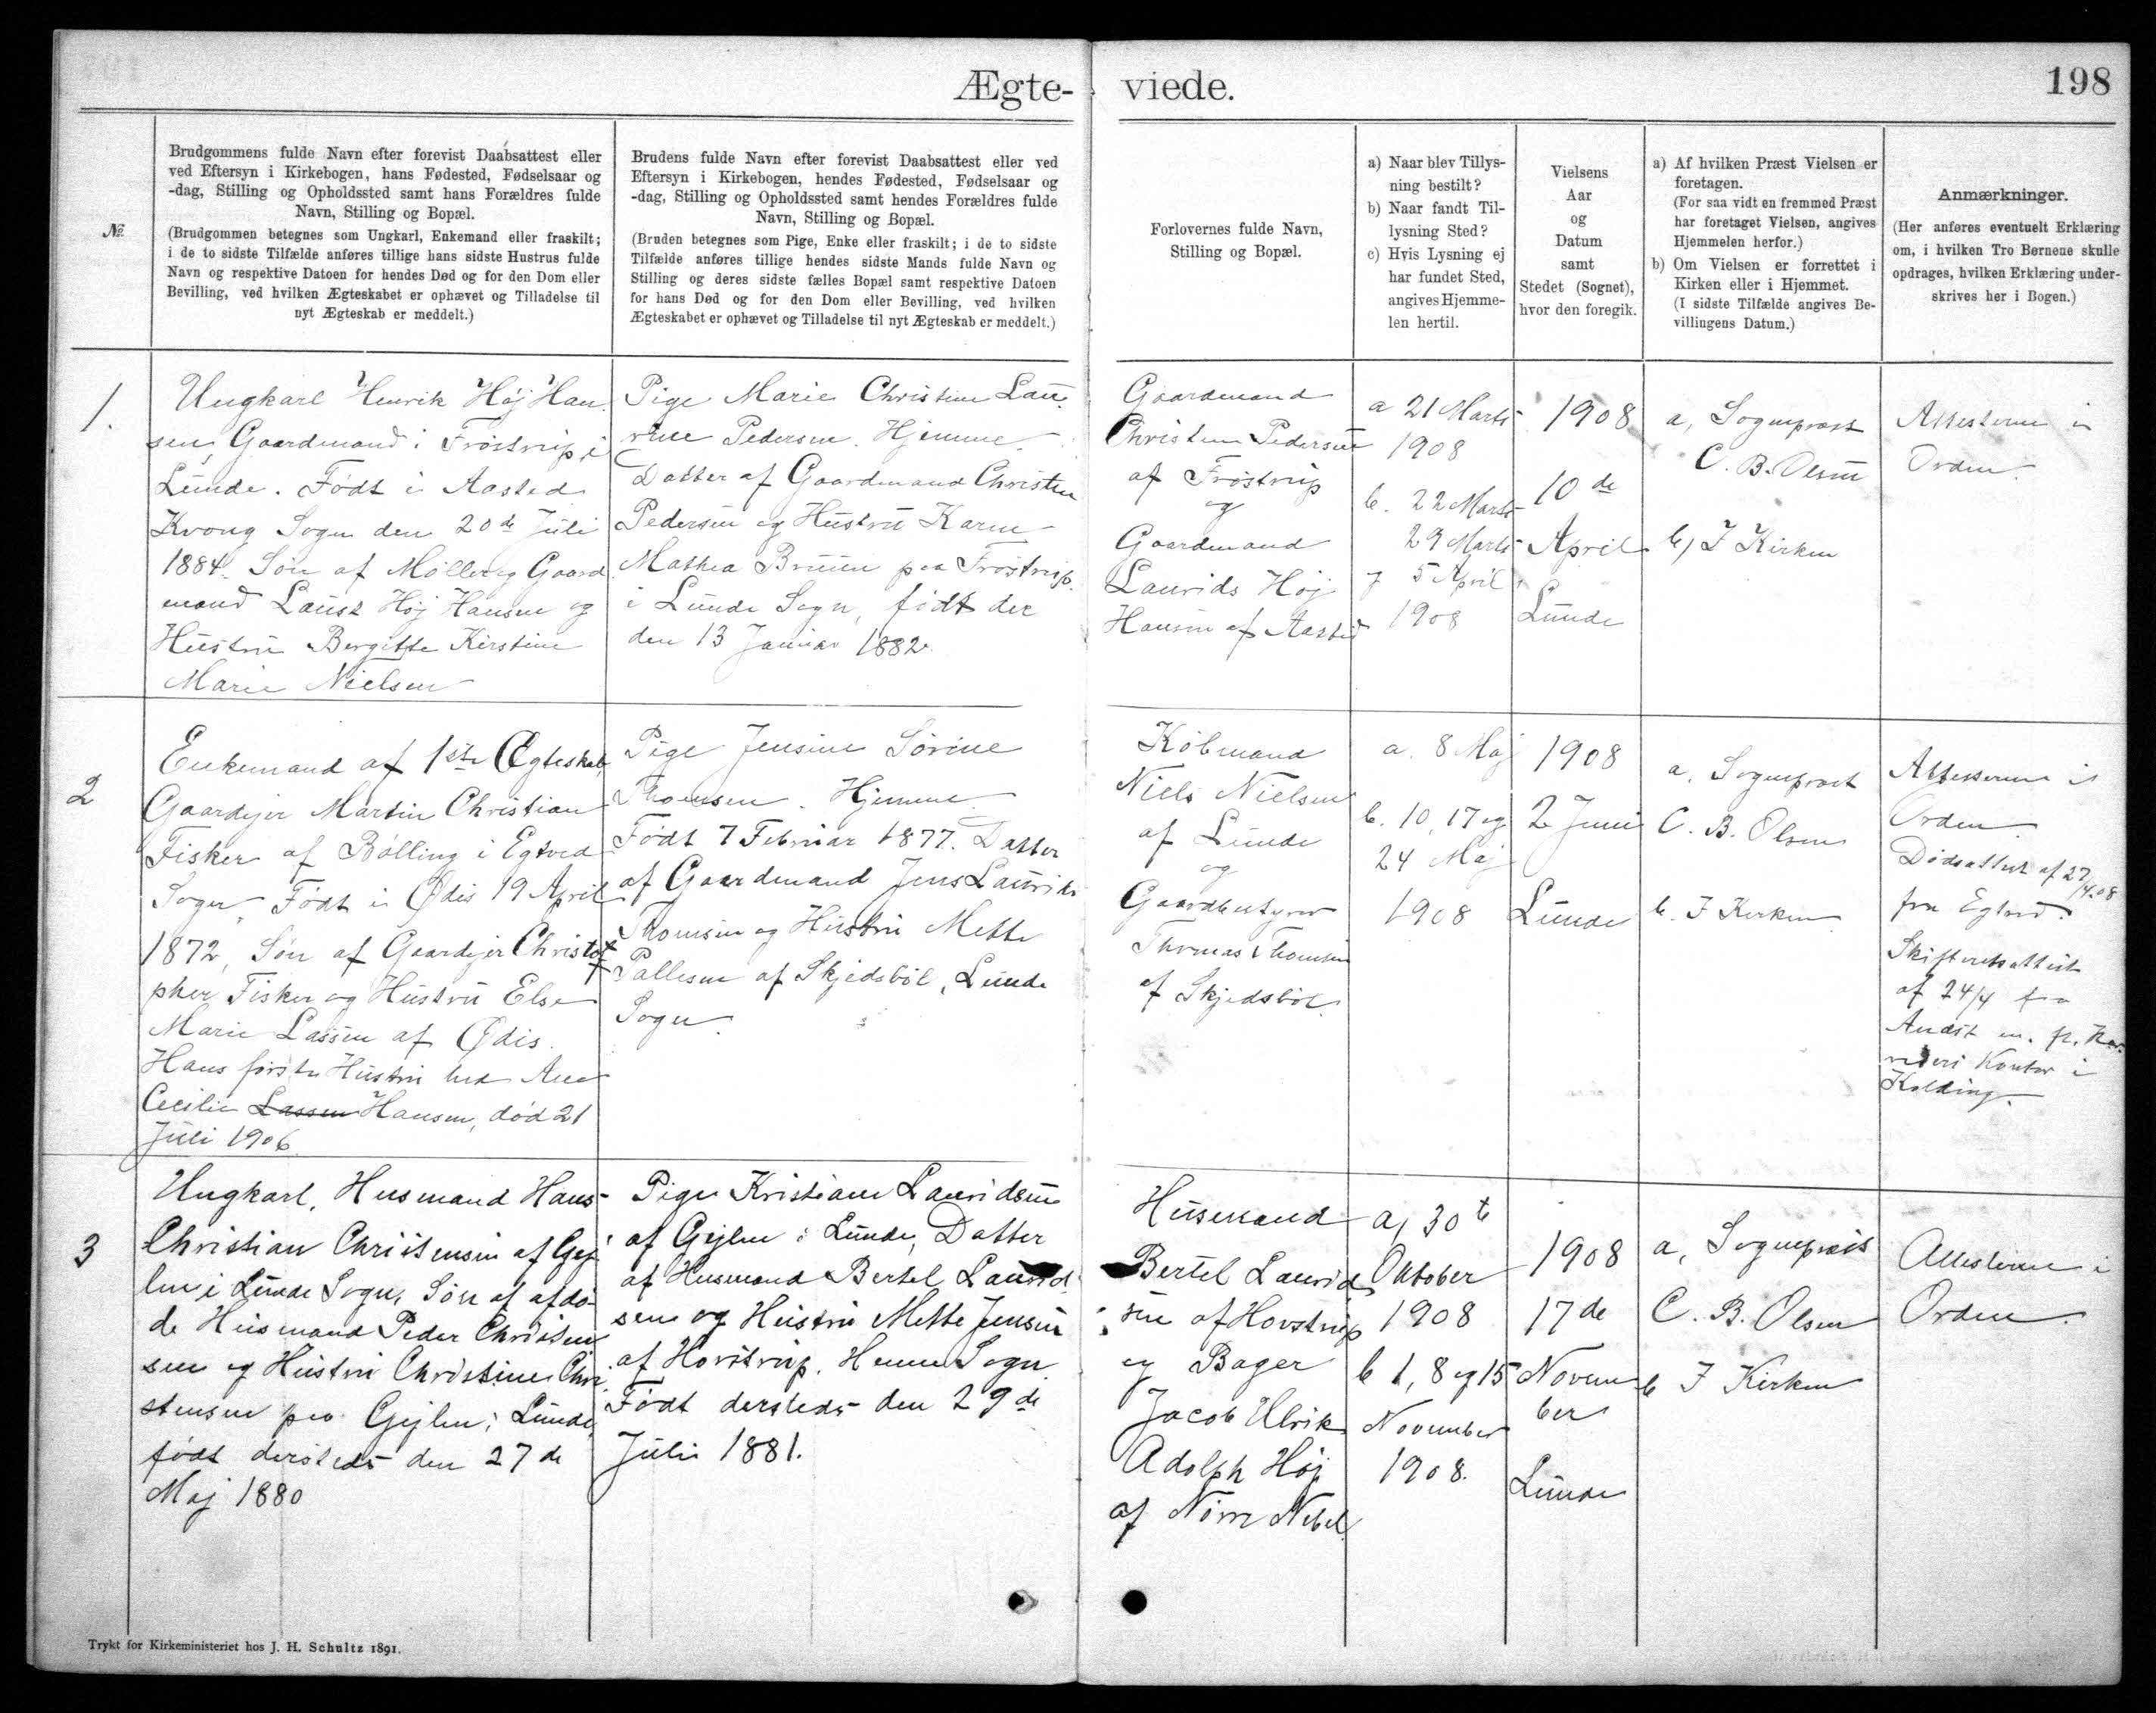 Ægte-
viede.
198
№
Brudgommens fulde Navn efter forevist Daabsattest eller
ved Eftersyn i Kirkebogen, hans Fødested, Fødselsaar og
-dag, Stilling og Opholdssted samt hans Forældres fulde
Navn, Stilling og Bopæl.
(Brudgommen betegnes som Ungkarl, Enkemand eller fraskilt;
i de to sidste Tilfælde anføres tillige hans sidste Hustrus fulde
Navn og respektive Datoen for hendes Død og for den Dom eller
Bevilling, ved hvilken Ægteskabet er ophævet og Tilladelse til
nyt Ægteskab er meddelt.)
Brudens fulde Navn efter forevist Daabsattest eller ved
Eftersyn i Kirkebogen, hendes Fødested, Fødselsaar og
-dag, Stilling og Opholdssted samt hendes Forældres fulde
Navn, Stilling og Bopæl.
(Bruden betegnes som Pige, Enke eller fraskilt; i de to sidste
Tilfælde anføres tillige hendes sidste Mands fulde Navn og
Stilling og deres sidste fælles Bopæl samt respektive Datoen
for hans Død og for den Dom eller Bevilling, ved hvilken
Ægteskabet er ophævet og Tilladelse til nyt Ægteskab er meddelt.)
Forlovernes fulde Navn,
Stilling og Bopæl.
a) Naar blev Tillys-
ning bestilt?
b) Naar fandt Til-
lysning Sted?
c) Hvis Lysning ej
har fundet Sted,
angives Hjemme-
len hertil.
Vielsens
Aar
og
Datum
samt
Stedet (Sognet),
hvor den foregik.
a) Af hvilken Præst Vielsen er
foretagen.
(For saa vidt en fremmed Præst
har foretaget Vielsen, angives
Hjemmelen herfor.)
b) Om Vielsen er forrettet i
Kirken eller i Hjemmet.
(I sidste Tilfælde angives Be-
villingens Datum.)
Anmærkninger.
(Her anføres eventuelt Erklæring
om, i hvilken Tro Børnene skulle
opdrages, hvilken Erklæring under-
skrives her i Bogen.)
1.
Ungkarl Henrik Høj Han
sen, Gaardmand i Frøstrup i
Lunde. Født i Aasted
Kvong Sogn den 20de Juli
1884. Søn af Møller og Gaard
mand Laust Høj Hansen og
Hustru Bergitte Kirstine
Marie Nielsen
Pige Marie Christine Lau
rine Pedersen. Hjemme
Datter af Gaardmand Christen
Pedersen og Hustru Karen
Mathea Bruun paa Frøstrup
i Lunde Sogn, født der
den 13 Januar 1882.
Gaardmand
Christen Pedersen
af Frøstrup
og
Gaardmand
Laurids Høj
Hansen af Aasted
a 21 Marts
1908
b. 22 Marts
29 Marts
og 5 April
1908
1908
10de
April
Lunde
a, Sognepræst
C. B. Olsen
b, I Kirken
Attesterne i
Orden.
2
Enkemand af 1ste Ægteskab,
Gaardejer Martin Christian
Fisker af Bølling i Egtved
Sogn, Født i Ødis 19 April
1872, Søn af Gaardejer Christof
pher Fisker og Hustru Else
Marie Lassen af Ødis.
Hans første Hustru hed Ane
Cecilie Lassen Hansen, død 21
Juli 1906.
Pige Jensine Sørine
Thomsen. Hjemme.
Født 7 Februar 1877. Datter
af Gaardmand Jens Laurids
Thomsen og Hustru Mette
Pallesen af Skjedsbøl, Lunde
Sogn.
Købmand
Niels Nielsen
af Lunde
og
Gaardbestyrer
Thomas Thomsen
af Skjedsbøl.
a. 8 Maj
b. 10, 17 og
24 Maj
1908
1908
2 Juni
Lunde
a, Sognepræst
C. B. Olsen
b. I Kirken
Attesterne i
Orden.
Dødsattest af 27/4.08
fra Egtved.
Skifteretsattest
af 24/4 fra
Andst
Kontor i
Kolding.
3
Ungkarl, Husmand Hans
Christian Christensen af Gej
len i Lunde Sogn, Søn af afdø
de Husmand Peder Christen
sen og Hustru Christine Chri
stensen paa Gejlen i Lunde,
født dersteds den 27de
Maj 1880
Pige Kristiane Lauridsen
af Gejlen i Lunde, Datter
af Husmand Bertel Laurid
sen og Hustru Mette Jensen
af Hovstrup, Henne Sogn.
Født dersteds den 29de
Juli 1881.
Husmand
Bertel Laurid
sen af Hovstrup
og Bager
Jacob Ulrik
Adolph Høj
af Nørre Nebel
a, 30te
Oktober
1908
b 1, 8 og 15
November
1908.
1908
17de
Novem
ber
Lunde
a, Sognepræst
C. B. Olsen
b I Kirken
Attesterne i
Orden.
Trykt for Kirkeministeriet hos J. H. Schultz 1891.